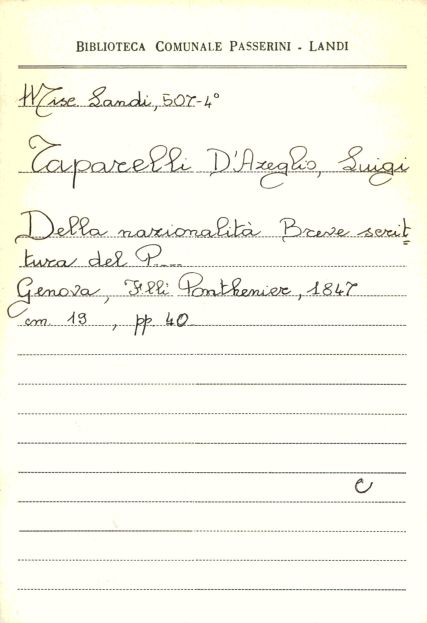 BIBLIOTECA COMUNALE PASSERINI - LANDI
Misc. Landi, 507-4°
Taparelli D'Azeglio, Luigi
Della nazionalità Breve scrit=
tura del P....
Genova, F.lli Ponthenier, 1847
cm. 19 , pp. 40
C